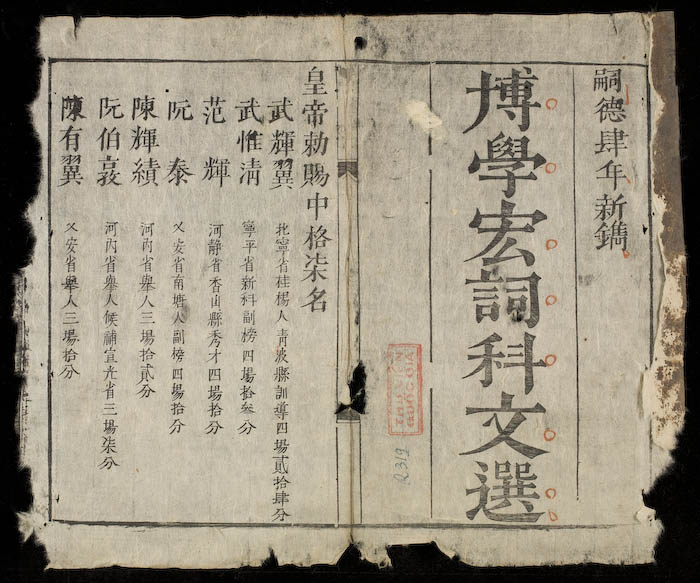 嗣德肆年新鐫
博學宏詞科文選
THƯ VIEN
QUOCGIA
皇帝勅賜中格柒名
武輝翼 北寧省桂楊人青波縣訓導四場貳拾肆分
武惟清 寧平省新科副榜四場拾叄分
范輝 河静省香山縣秀才四場拾分
阮泰 乂安省南塘人副榜四場拾分
陳輝績 河内省舉人三場拾貳分
阮伯 河内省舉人候補宣光省三場柒分
陳有翼 乂安省舉人三場拾分